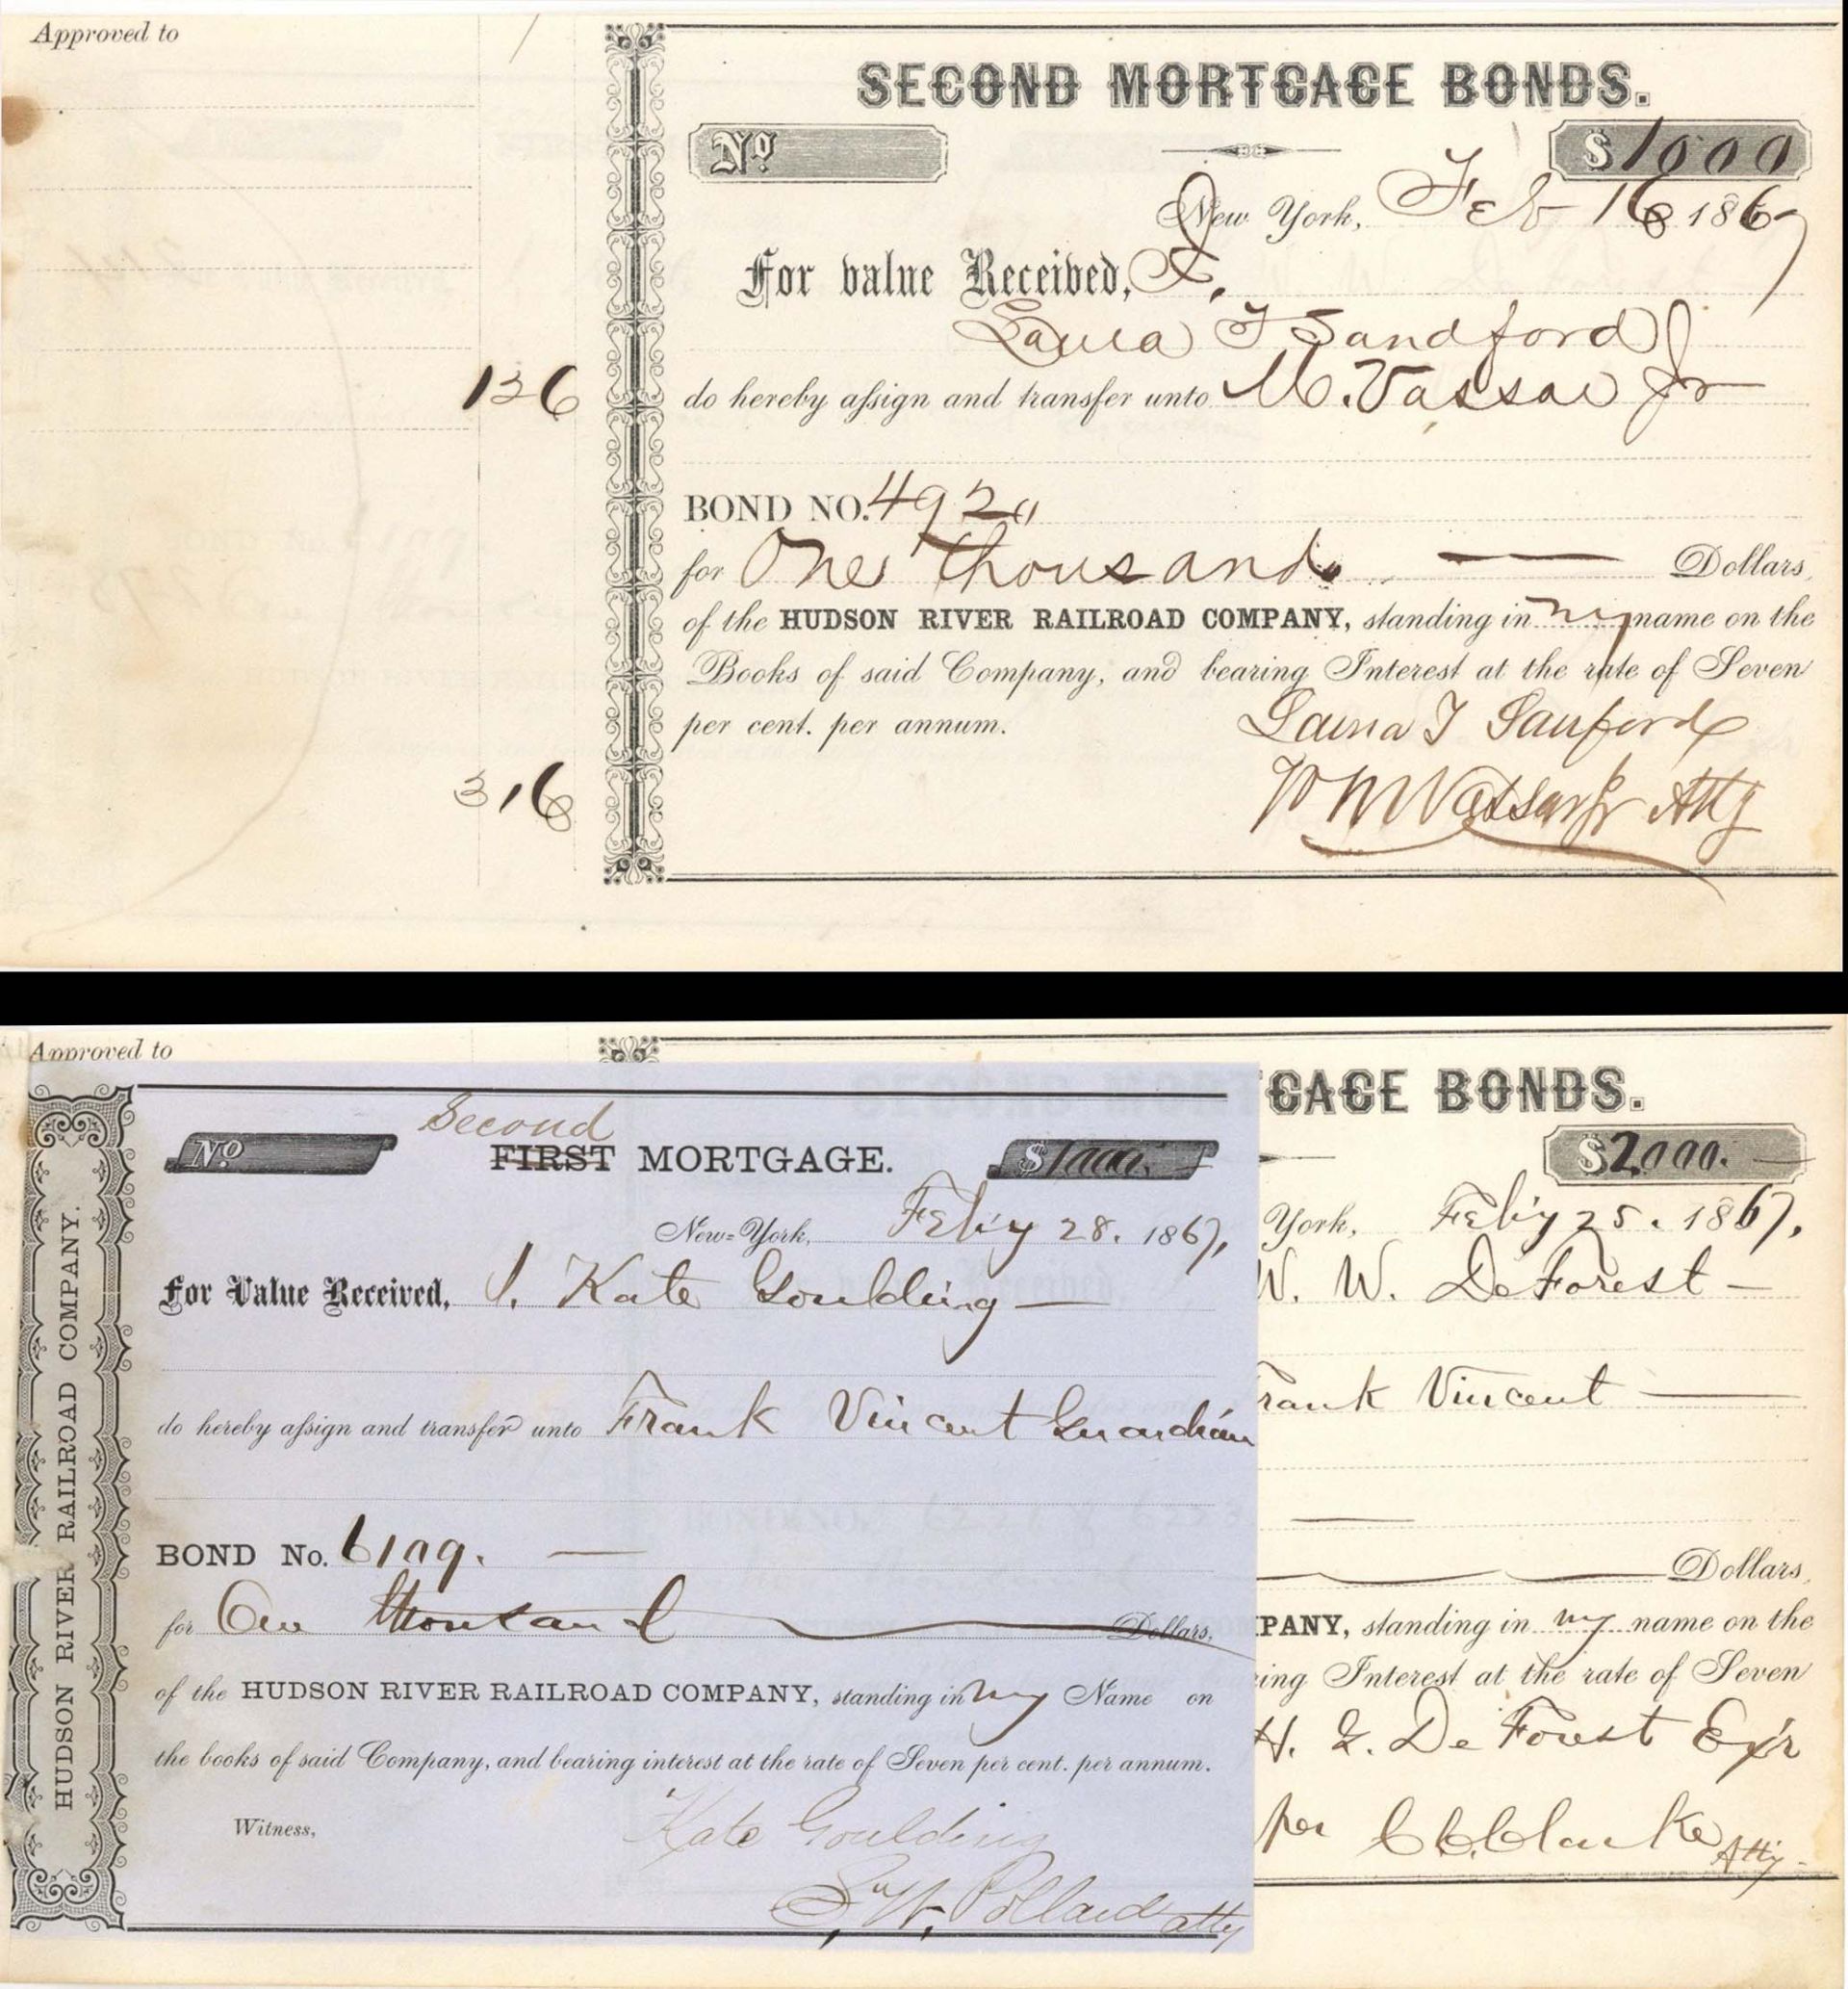 Approved to
SECOND MORTGAGE BONDS.
No
$1000
New York, Feb 16 1867
For value Received, I,
Laura T Sandford
136
do hereby assign and transfer unto M. Vassar Jr
BOND NO. 4920
for One thousand Dollars,
of the HUDSON RIVER RAILROAD COMPANY, standing in my name on the
Books of said Company, and bearing Interest at the rate of Seven
per cent. per annum.
Laura T Sanford
316
M Vassar Jr Atty
Approved to
GAGE BONDS.
$2000.
York, Feby 25. 1867,
W. W. DeForest
rank Vincent
Dollars,
PANY, standing in my name on the
ing Interest at the rate of Seven
H. G. De Forest Exr
per C C Clarke Atty
HUDSON RIVER RAILROAD COMPANY.
No
Second
FIRST MORTGAGE.
$1000.
New-York, Feby 28. 1867,
For Value Received, I. Kate Goulding
do hereby assign and transfer unto Frank Vincent Guardian
BOND No. 6109.
for One thousand Dollars,
of the HUDSON RIVER RAILROAD COMPANY, standing in my Name on
the books of said Company, and bearing interest at the rate of Seven per cent. per annum.
Witness,
Kate Goulding
W. Pollard atty